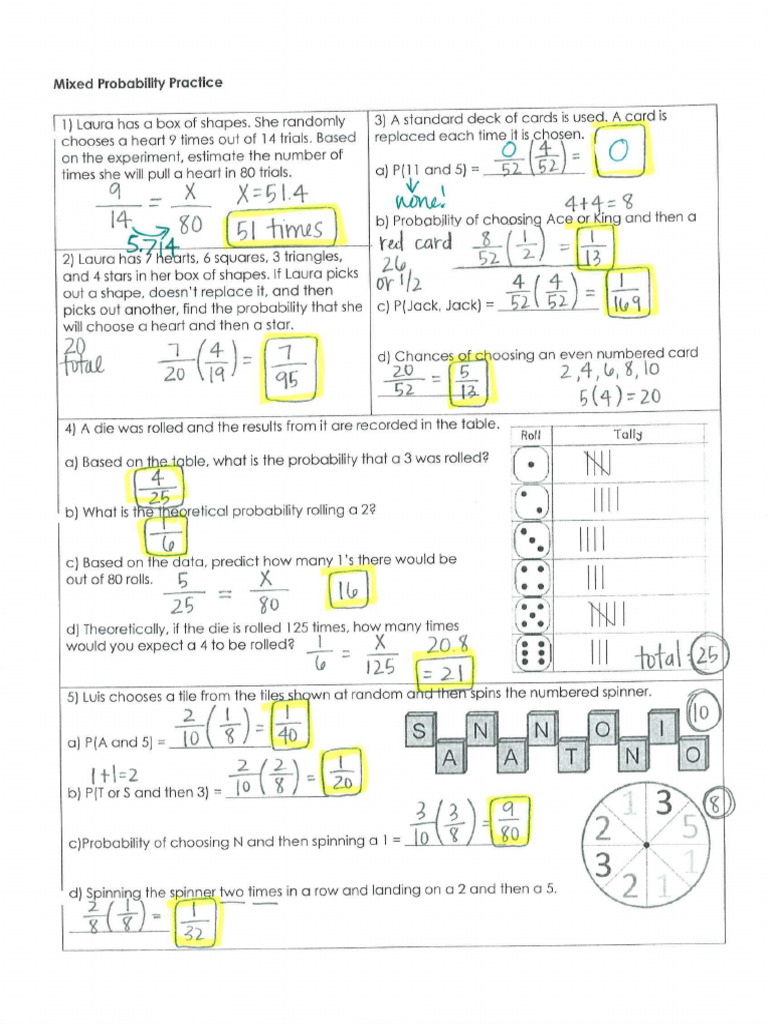 Mixed Probability Practice
1) Laura has a box of shapes. She randomly
chooses a heart 9 times out of 14 trials. Based
on the experiment, estimate the number of
times she will pull a heart in 80 trials.
9/14 = x/80 x=51.4
5.714
51 times
2) Laura has 7 hearts, 6 squares, 3 triangles,
and 4 stars in her box of shapes. If Laura picks
out a shape, doesn't replace it, and then
picks out another, find the probability that she
will choose a heart and then a star.
20 total
7/20 (4/19) = 7/95
3) A standard deck of cards is used. A card is
replaced each time it is chosen.
a) P(11 and 5) = 0/52 (4/52) = 0
none!
4+4=8
b) Probability of choosing Ace or King and then a
red card 8/52 (1/2) = 1/13
26
or 1/2
c) P(Jack, Jack) = 4/52 (4/52) = 1/169
d) Chances of choosing an even numbered card
20/52 = 5/13
2,4,6,8,10
5(4)=20
4) A die was rolled and the results from it are recorded in the table.
a) Based on the table, what is the probability that a 3 was rolled?
4/25
b) What is the theoretical probability rolling a 2?
1/6
c) Based on the data, predict how many 1's there would be
out of 80 rolls. 5/25 = x/80 16
d) Theoretically, if the die is rolled 125 times, how many times
would you expect a 4 to be rolled? 1/6 = x/125 20.8
= 21
Roll Tally
total = 25
5) Luis chooses a tile from the tiles shown at random and then spins the numbered spinner.
a) P(A and 5) = 2/10 (1/8) = 1/40
1+1=2
b) P(T or S and then 3) = 2/10 (2/8) = 1/20
c)Probability of choosing N and then spinning a 1 = 3/10 (3/8) = 9/80
d) Spinning the spinner two times in a row and landing on a 2 and then a 5.
2/8 (1/8) = 1/32
10
S N N O I
A A T N O
8
1 3
2 5
3 1
2 1